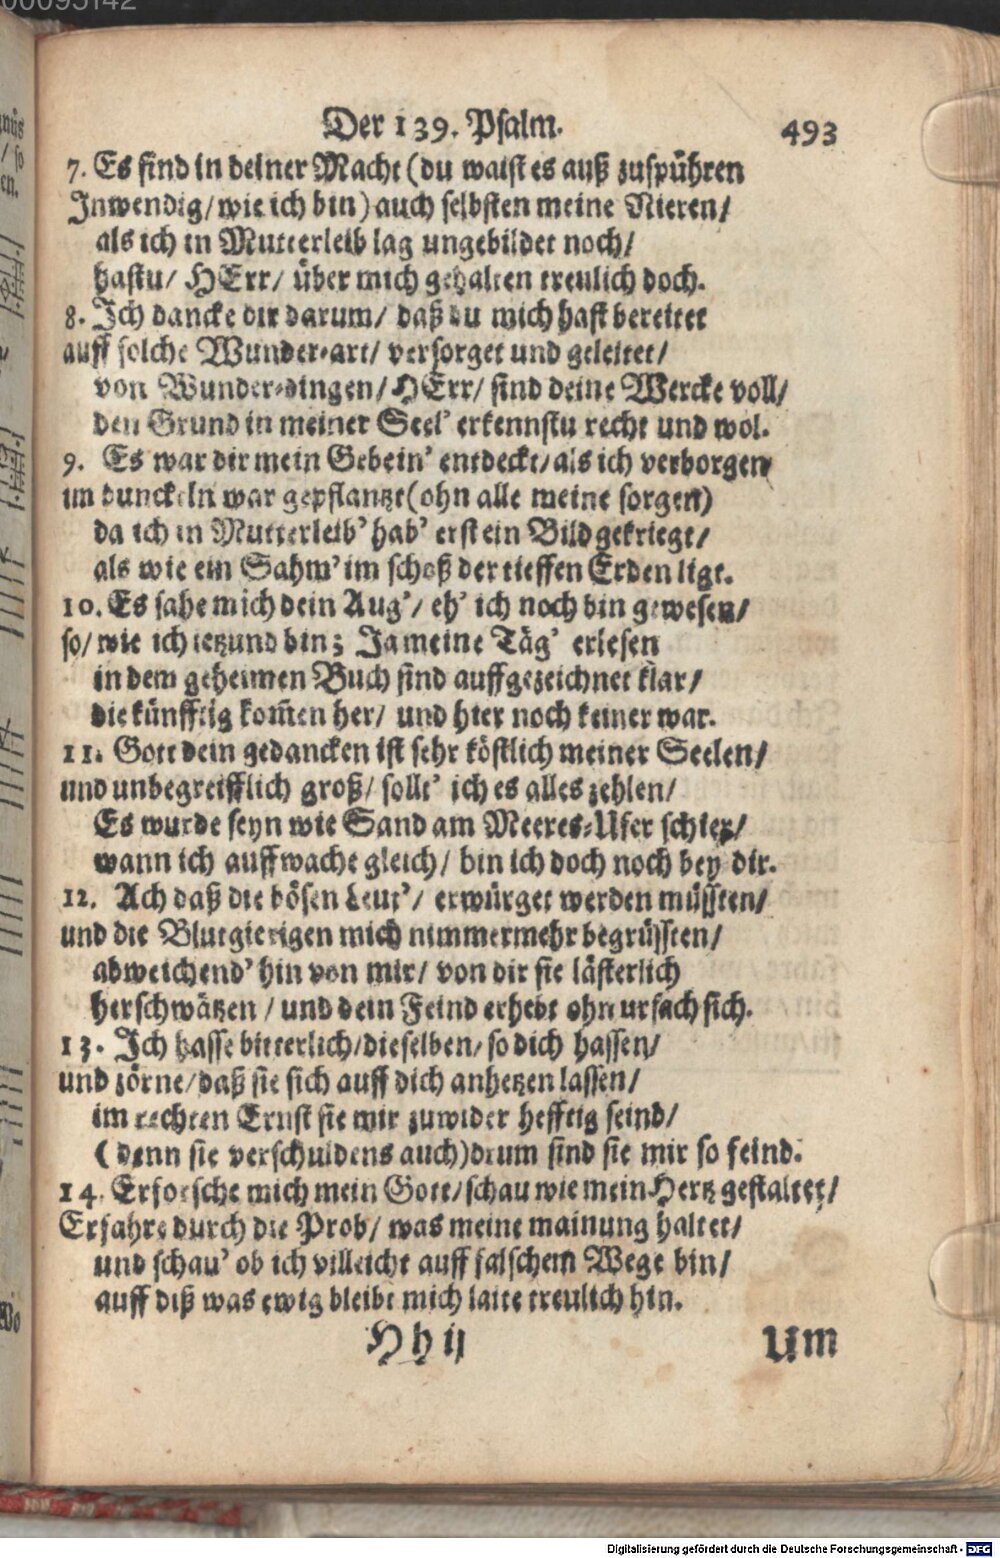 00095142
Der 139. Psalm.
493
7. Es sind in deiner Macht (du waist es auß zuspühren
Inwendig/ wie ich bin) auch selbsten meine Nieren/
als ich in Mutterleib lag ungebildet noch/
hastu/ HErr/ über mich gehalten treulich doch.
8. Ich dancke dir darum/ daß du mich hast bereitet
auff solche Wunder-art/ versorget und geleitet/
von Wunder-dingen/ HErr/ sind deine Wercke voll/
den Grund in meiner Seel' erkennstu recht und wol.
9. Es war dir mein Gebein' entdeckt/ als ich verborgen
im dunckeln war gepflantzt (ohn alle meine sorgen)
da ich in Mutterleib' hab' erst ein Bild gekriegt/
als wie ein Sahm' im schoß der tieffen Erden ligt.
10. Es sahe mich dein Aug'/ eh' ich noch bin gewesen/
so/ wie ich ietzund bin; Ja meine Täg' erlesen
in dem geheimen Buch sind auffgezeichnet klar/
die künfftig kom̃en her/ und hier noch keiner war.
11. Gott dein gedancken ist sehr köstlich meiner Seelen/
und unbegreifflich groß/ sollt' ich es alles zehlen/
Es wurde seyn wie Sand am Meeres-Ufer schier/
wann ich auffwache gleich/ bin ich doch noch bey dir.
12. Ach daß die bösen Leut'/ erwürget werden müssten/
und die Blutgierigen mich nimmermehr begrüssten/
abweichend' hin von mir/ von dir sie lästerlich
herschwätzen/ und dein Feind erhebt ohn ursach sich.
13. Ich hasse bitterlich/ dieselben/ so dich hassen/
und zörne/ daß sie sich auff dich anhetzen lassen/
im rechten Ernst sie mir zuwider hefftig seind/
(denn sie verschuldens auch) drum sind sie mir so feind.
14. Erforsche mich mein Gott/ schau wie mein Hertz gestaltet/
Erfahre durch die Prob/ was meine mainung haltet/
und schau' ob ich villeicht auff falschem Wege bin/
auff diß was ewig bleibt mich laite treulich hin.
Hh ij
Um
Digitalisierung gefördert durch die Deutsche Forschungsgemeinschaft - DFG